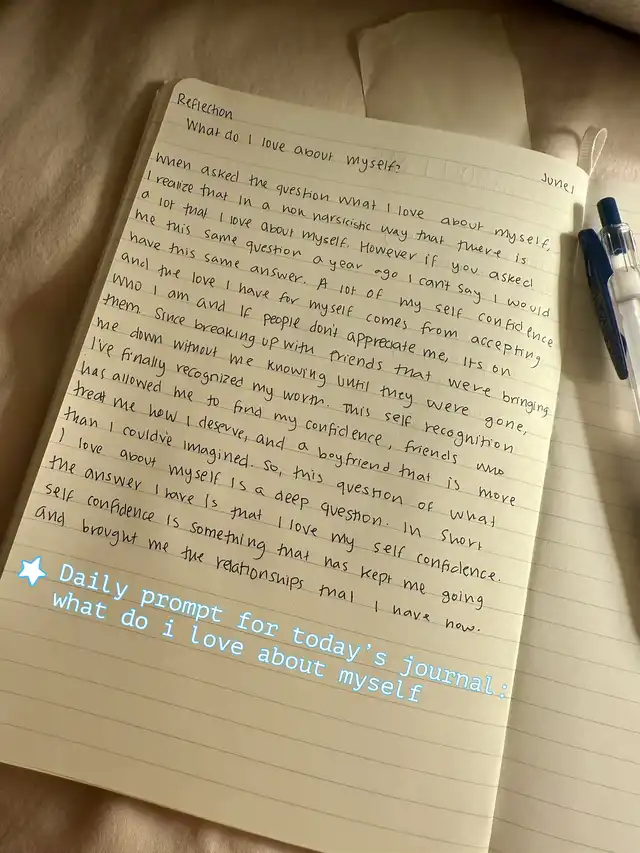 Reflection
What do I love about myself?
June 1
When asked the question what I love about myself,
I realize that in a non narsicistic way that there is
a lot that I love about myself. However if you asked
me this same question a year ago I can't say I would
have this same answer. A lot of my self confidence
and the love I have for myself comes from accepting
who I am and if people don't appreciate me, its on
them. Since breaking up with friends that were bringing
me down without me knowing until they were gone,
I've finally recognized my worth. This self recognition
has allowed me to find my confidence, friends who
treat me how I deserve, and a boyfriend that is more
than I could've imagined. So, this question of what
I love about myself is a deep question. In short
the answer I have is that I love my self confidence.
Self confidence is something that has kept me going
and brought me the relationships that I have now.
Daily prompt for today's journal:
what do i love about myself